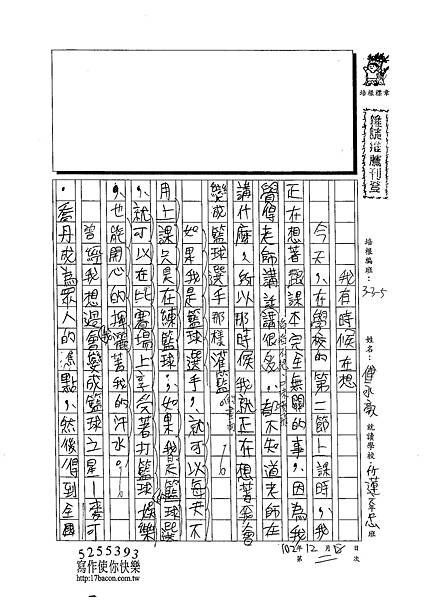 培根標章
培根編班：
33-5
姓名：
就讀學校
班
我有時候在想
今天，在學校的第二節上課時，我
正在想著跟課本完全無關的事，因為我
覺得老師講話講很多，都不知道老師在
講什麼，所以那時候我就正在想著我會
變成籃球選手那樣灌籃。
如果我是籃球選手，就可以每天不
用上課只是在練籃球，如果我是籃球選
，就可以在比賽場上享受著打籃球娛樂
，也能用心的揮灑著我的汗水。
曾經我想過會變成籃球之星—麥可
・喬丹成為眾人的焦點，然後得到全國
102年12月
第
次
日
5255393
寫作使你快樂
http:/17bacon.com.tw